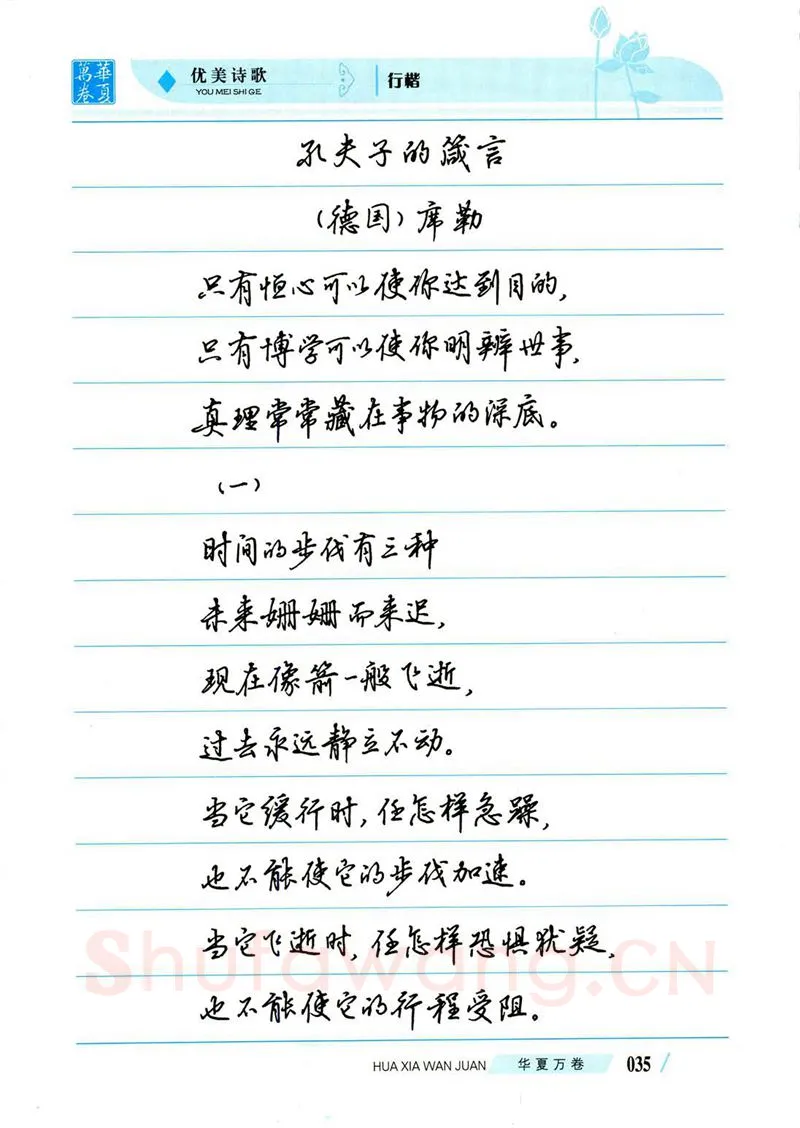 華夏萬卷
优美诗歌
YOU MEI SHI GE
行楷
孔夫子的箴言
（德国）席勒
只有恒心可以使你达到目的，
只有博学可以使你明辨世事，
真理常常藏在事物的深底。
（一）
时间的步伐有三种
未来姗姗而来迟，
现在像箭一般飞逝，
过去永远静立不动。
当它缓行时，任怎样急躁，
也不能使它的步伐加速。
当它飞逝时，任怎样恐惧犹疑，
也不能使它的行程受阻。
Shufawang.CN
HUA XIA WAN JUAN
华夏万卷
035